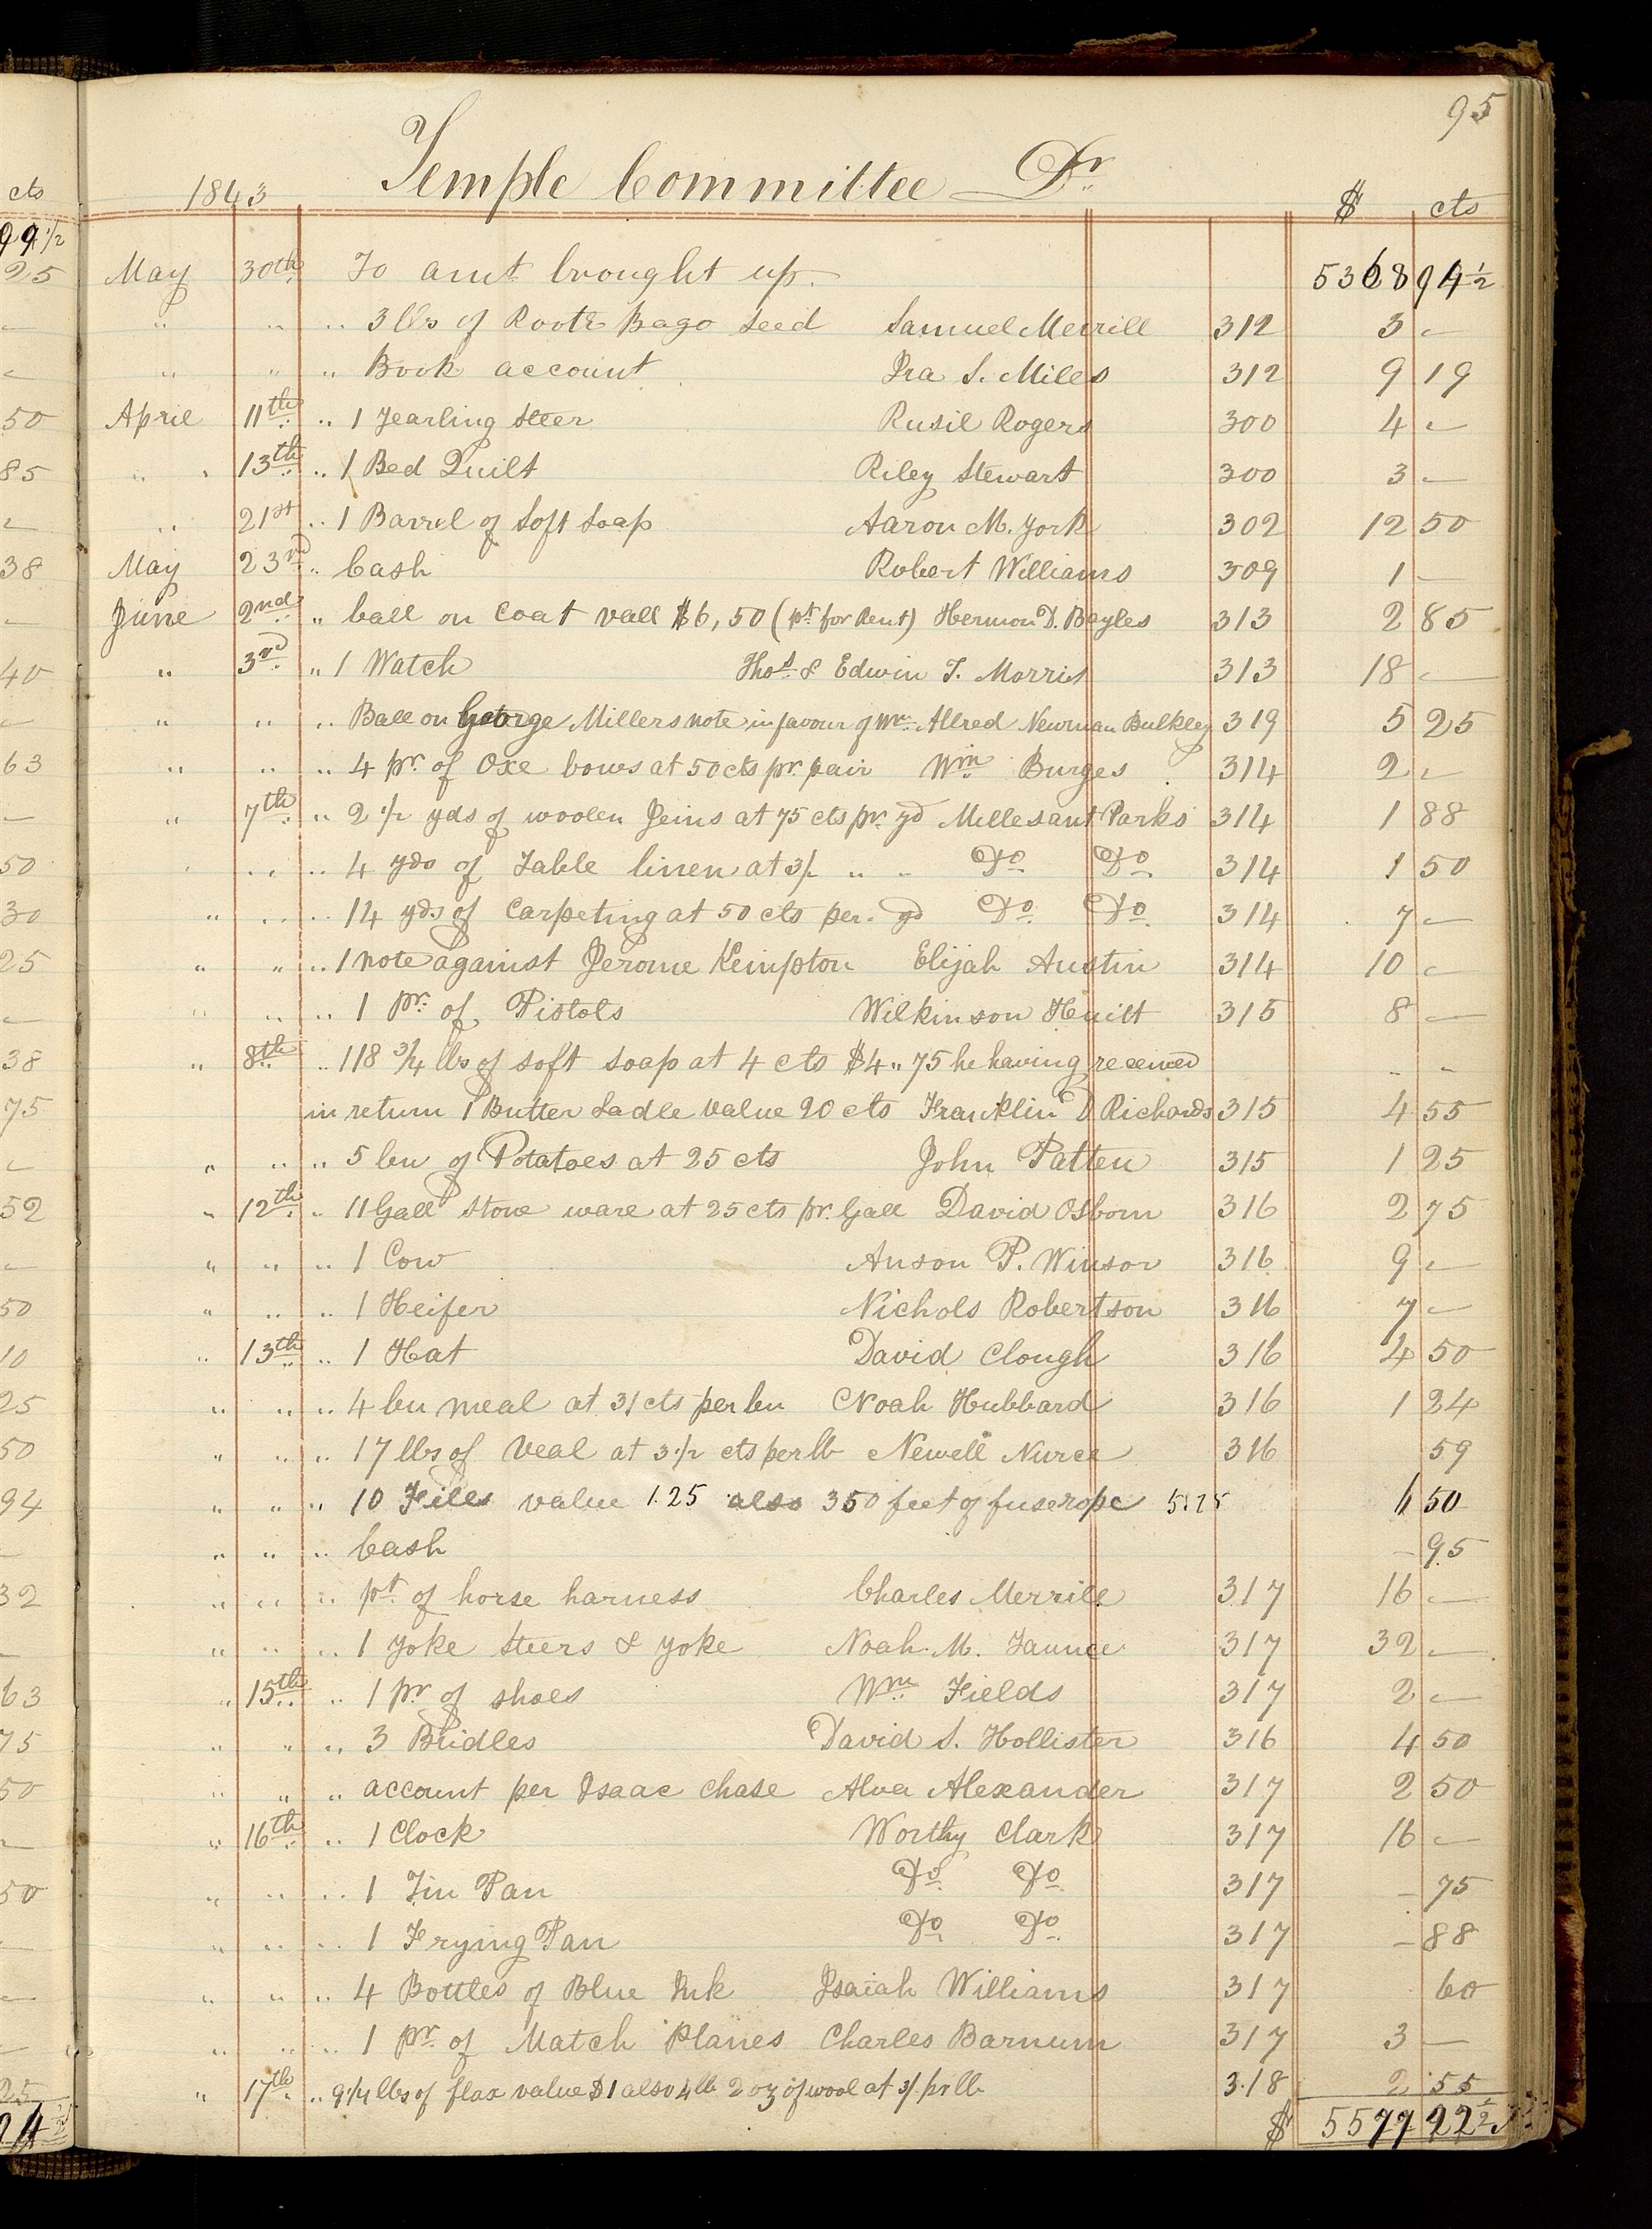 95
Temple Committee Dr
1843 $ cts
May 30th To amt brought up. 5368 94 1/2
" " " 3 lbs of Roota Bago seed Samuel Merrill 312 3 —
" " " Book account Ira S. Miles 312 9 19
April 11th " 1 yearling steer Rusil Rogers 300 4 —
" 13th " 1 Bed Quilt Riley Stewart 300 3 —
" 21st " 1 Barrel of Soft Soap Aaron M. York 302 12 50
May 23rd " Cash Robert Williams 309 1 —
June 2nd " ball on Coat vall $6,50 (pt for Rent) Hermon D. Bayles 313 2 85
" 3rd " 1 Watch Thos & Edwin T. Morris 313 18 —
" " " Ball on George Millers note in favour of Wm Allred Newman Bulkley 319 5 25
" " " 4 pr. of Oxe bows at 50 cts pr. pair Wm Burges 314 2 —
" 7th " 2 1/2 yds of woolen Jeins at 75 cts pr. yd Millesant Parks 314 1 88
" " " 4 yds of Table linen at 3/ " " Do Do 314 1 50
" " " 14 yds of Carpeting at 50 cts per. yd Do Do 314 7 —
" " " 1 note against Jerome Kempton Elijah Austin 314 10 —
" " " 1 pr. of Pistols Wilkinson Huitt 315 8 —
" 8th " 118 3/4 lbs of soft soap at 4 cts $4 " 75 he having received " "
in return 1 Butter Ladle value 20 cts Franklin D Richards 315 4 55
" " " 5 bu of Potatoes at 25 cts John Patten 315 1 25
" 12th " 11 Gall stone ware at 25 cts pr. Gall David Osborn 316 2 75
" " " 1 Cow Anson P. Winsor 316 9 —
" " " 1 Heifer Nichols Robertson 316 7 —
" 13th " 1 Hat David Clough 316 4 50
" " " 4 bu meal at 31 cts per bu Noah Hubbard 316 1 24
" " " 17 lbs of Veal at 3 1/2 cts per lb Newell Nurce 316 59
" " " 10 Files value 1.25 also 350 feet of fuserope 5.25 6 50
" " " Cash — 95
" " " pt. of horse harness Charles Merrill 317 16 —
" " " 1 yoke Steers & yoke Noah M. Taunce 317 32 —
" 15th " 1 pr of shoes Wm Fields 317 2 —
" " " 3 Bridles David S. Hollister 316 4 50
" " " account per Isaac Chase Alva Alexander 317 2 50
" 16th " 1 Clock Worthy Clark 317 16 —
" " " 1 Tin Pan Do Do 317 — 75
" " " 1 Frying Pan Do Do 317 — 88
" " " 4 Bottles of Blue Ink Isaiah Williams 317 60
" " " 1 pr. of Match Planes Charles Barnum 317 3 —
" 17th " 9 1/4 lbs of flax value $1 also 4 lb 2 oz of wool at 3/ pr lb 318 2 55
$ 5577 22 1/2